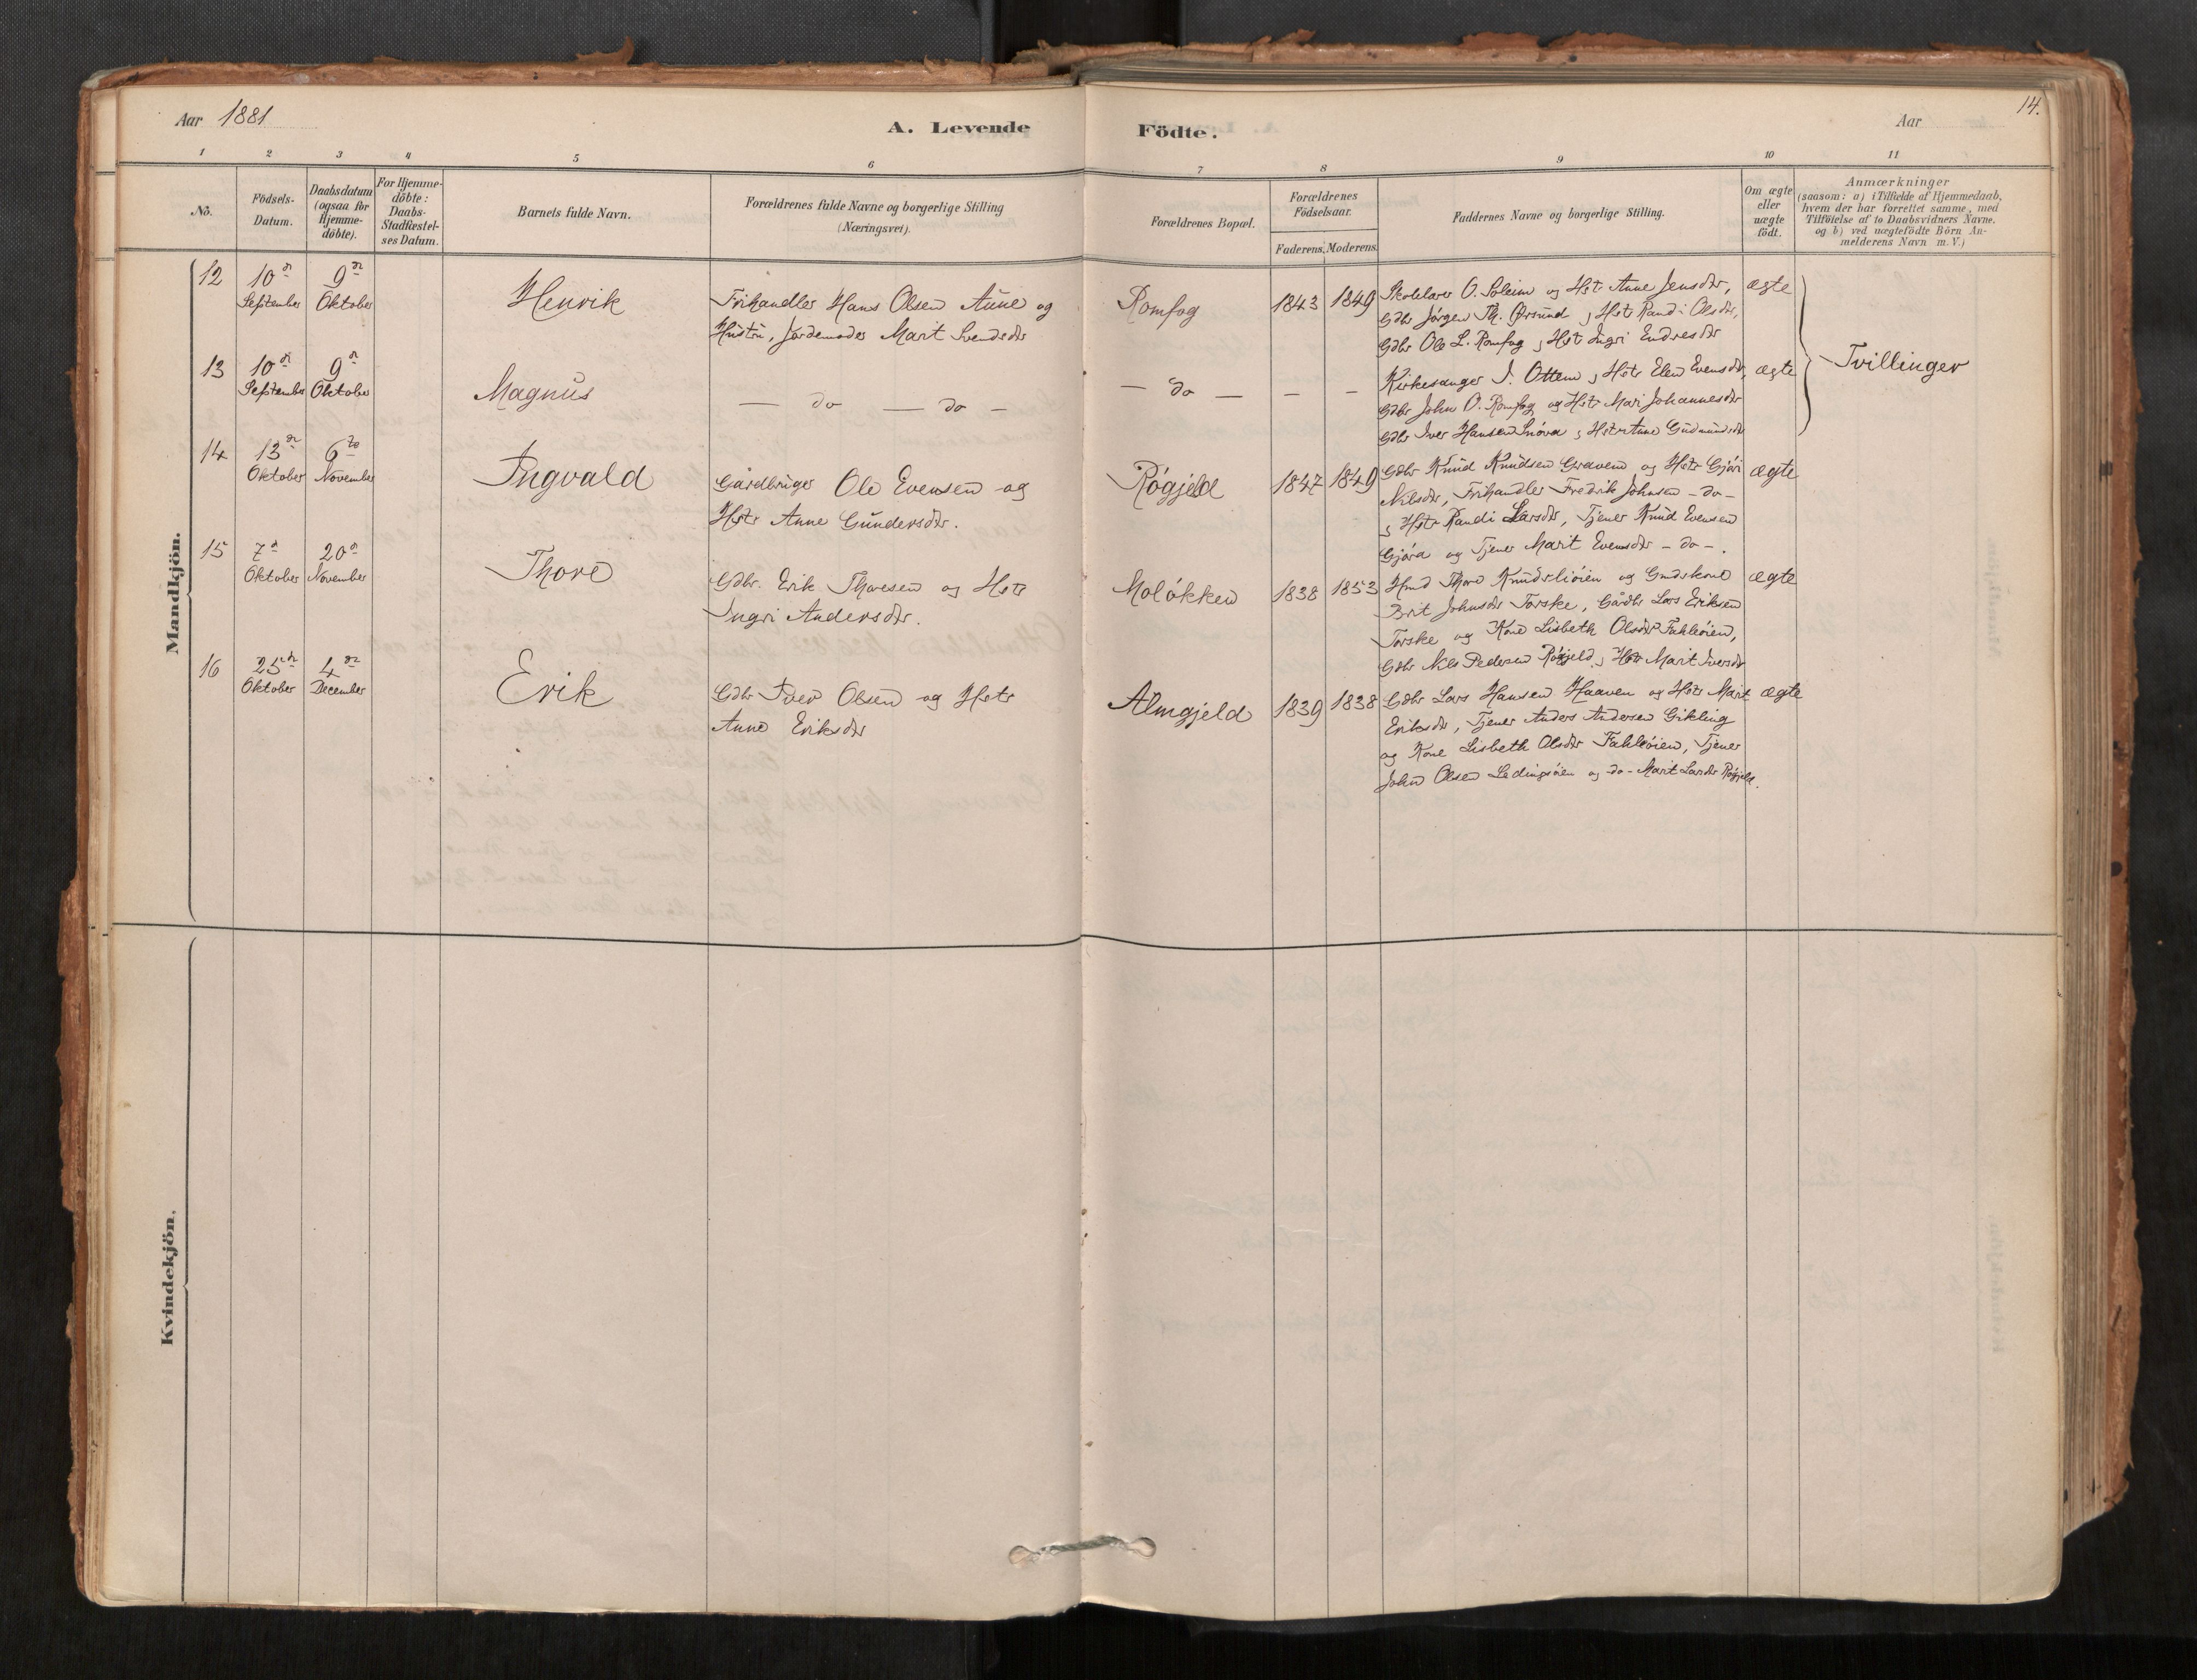 Aar 1881
A. Levende
Födte.
Aar
14.
1 2 3 4 5 6 7 8 9 10 11
No.
Födsels-
Datum.
Daabsdatum
(ogsaa for
Hjemme-
döbte).
For Hjemme-
döbte:
Daabs-
Stadfæstel-
ses Datum.
Barnets fulde Navn.
Forældrenes fulde Navne og borgerlige Stilling
(Næringsvei).
Forældrenes Bopæl.
Forældrenes
Födselsaar.
Faderens. Moderens.
Faddernes Navne og borgerlige Stilling.
Om ægte
eller
uægte
födt.
Anmærkninger
(saasom: a) i Tilfælde af Hjemmedaab,
hvem der har forrettet samme, med
Tilföielse af to Daabsvidners Navne,
og b) ved uægtefödte Börn An-
melderens Navn m. V.)
Mandkjön.
12
10de
September
9de
Oktober
Henrik
Frihandler Hans Olsen Aune og
Hustru, Jordemoder Marit Svendsdtr
Romfog
1843
1849
Skolelærer O. Soleim og Hstr Anne Jensdtr,
Gdbr Jörgen Th. Örsund og Hstr Randi Olsdtr,
Gdbr Ole L. Romfog og Hstr Ingri Endresdtr
ægte
13
10de
September
9de
Oktober
Magnus
— do — do —
— do —
—
—
Kirkesanger I. Ottem og Hstr Elen Evensdtr,
Gdbr John O. Romfog og Hstr Mari Johannesdtr
Gdbr Iver Hansen Snöva og Hstr Anne Gudmundsdtr
ægte
Tvillinger
14
13de
Oktober
6te
November
Ingvald
Gårdbruger Ole Evensen og
Hstr Anne Gundersdtr.
Rögjeld
1847
1849
Gdbr Knud Knudsen Graven og Hstr Gjöri
Nilsdtr, Frihandler Fredrik Johnsen - do -
og Hstr Randi Larsdtr, Tjener Knud Evensen
Gjöra og Tjener Marit Evensdtr - do - .
ægte
15
7de
Oktober
20de
November
Thore
Gdbr. Erik Thoresen og Hstr
Ingri Andersdtr.
Molökken
1838
1853
Thore Knudsliöien og
Brit Johnsdtr Torske, Gårdbr Lars Eriksen
Torske og Kone Lisbeth Olsdtr Fahleöien,
Gdbr Nils Pedersen Rögjeld og Hstr Marit Iversdtr
ægte
16
25de
Oktober
4de
December
Erik
Gdbr Iver Olsen og Hstr
Anne Eriksdtr
Almgjeld
1839
1838
Gdbr Lars Hansen Haaven og Hstr Marit
Eriksdtr, Tjener Anders Andersen Gikling
og Kone Lisbeth Olsdtr Fahleöien, Tjener
John Olsen Ledingsöien og -do- Marit Larsdtr Rögjeld.
ægte
Kvindekjön.